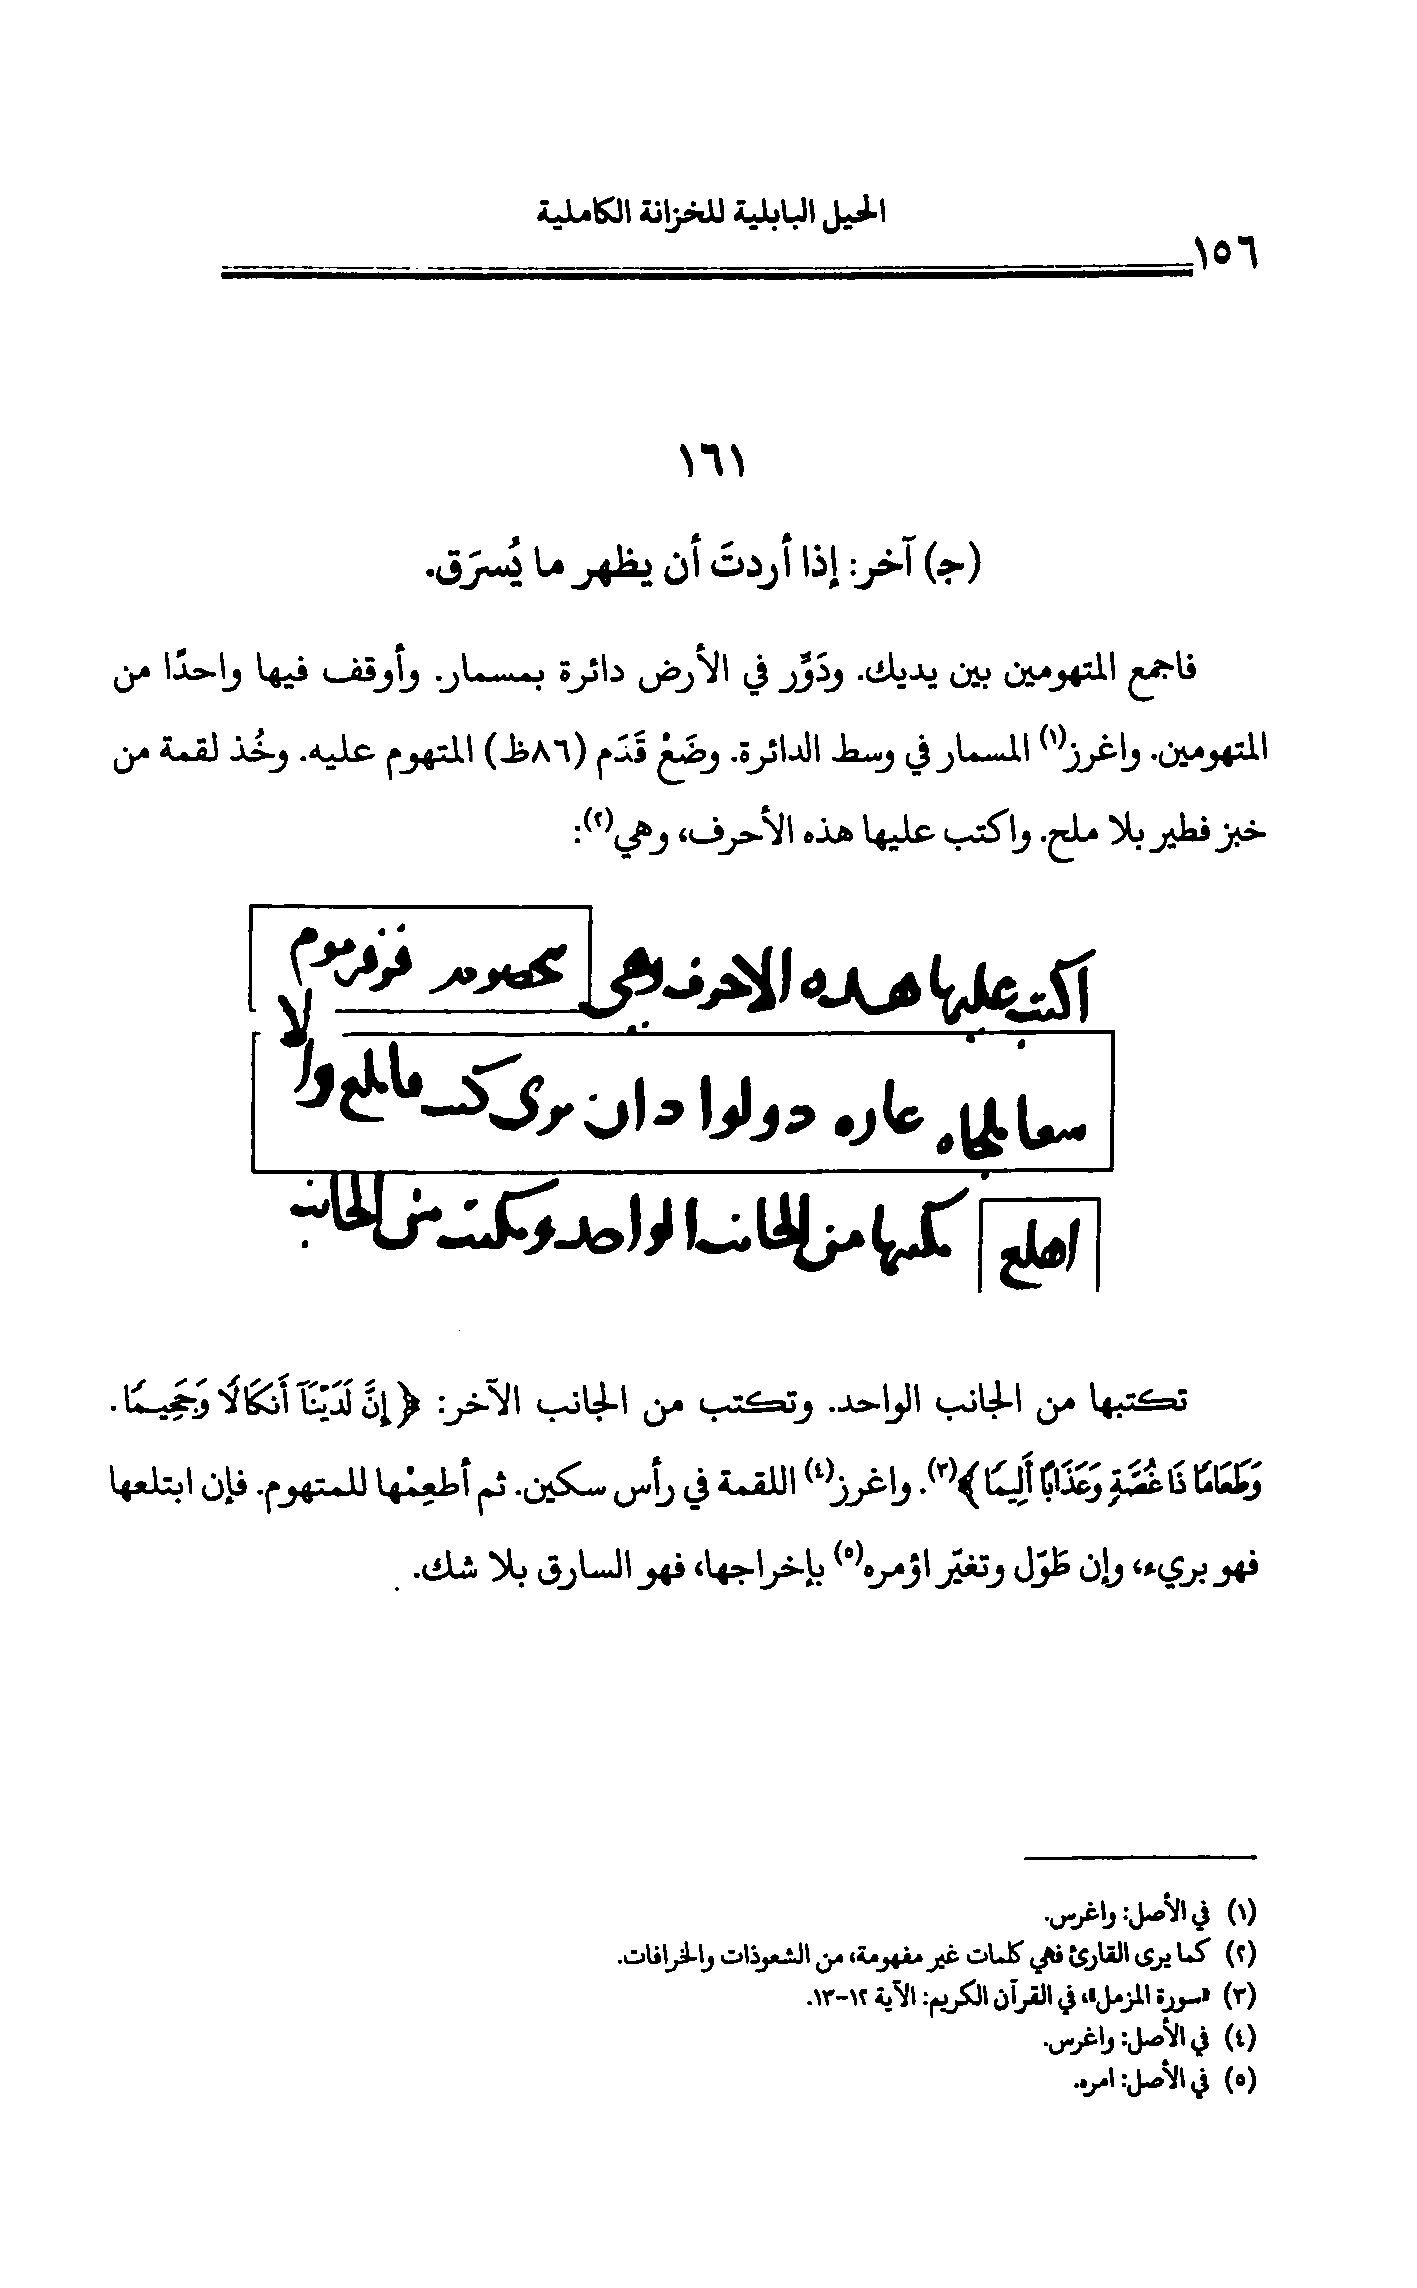 الحيل البابلية للخزانة الكاملية
١٥٦
١٦١
(جـ) آخر: إذا أردتَ أن يظهر ما يُسرَق.
فاجمع المتهومين بين يديك. ودَوِّر في الأرض دائرة بمسمار. وأوقف فيها واحدًا من
المتهومين. واغرز(١) المسمار في وسط الدائرة. وضَعْ قَدَم (٨٦ظ) المتهوم عليه. وخُذ لقمة من
خبز فطير بلا ملح. واكتب عليها هذه الأحرف، وهي(٢):
اكتب عليها هده الاحرف وهي
دولوا دان
اهلع تكتبها من الجانب الواحد وتكتب من الجانب
تكتبها من الجانب الواحد. وتكتب من الجانب الآخر: ﴿إِنَّ لَدَيْنَآ أَنكَالًا وَجَحِيمًا.
وَطَعَامًا ذَا غُصَّةٍ وَعَذَابًا أَلِيمًا﴾(٣). واغرز(٤) اللقمة في رأس سكين. ثم أطعِمْها للمتهوم. فإن ابتلعها
فهو بريء، وإن طَوّل وتغيّر اؤمره(٥) بإخراجها، فهو السارق بلا شك.
(١) في الأصل: واغرس.
(٢) كما يرى القارئ فهي كلمات غير مفهومة، من الشعوذات والخرافات.
(٣) «سورة المزمل»، في القرآن الكريم: الآية ١٢-١٣.
(٤) في الأصل: واغرس.
(٥) في الأصل: امره.